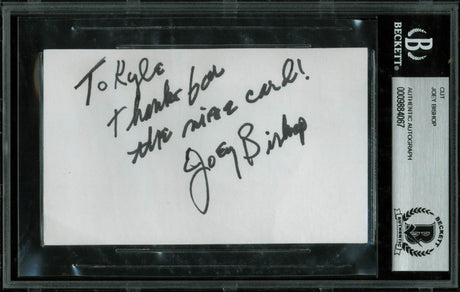 To Kyle
Thanks for
the nice card!
Joey Bishop
BECKETT
CUT
JOEY BISHOP
AUTHENTIC AUTOGRAPH
0009884067
BECKETT
AUTHENTIC